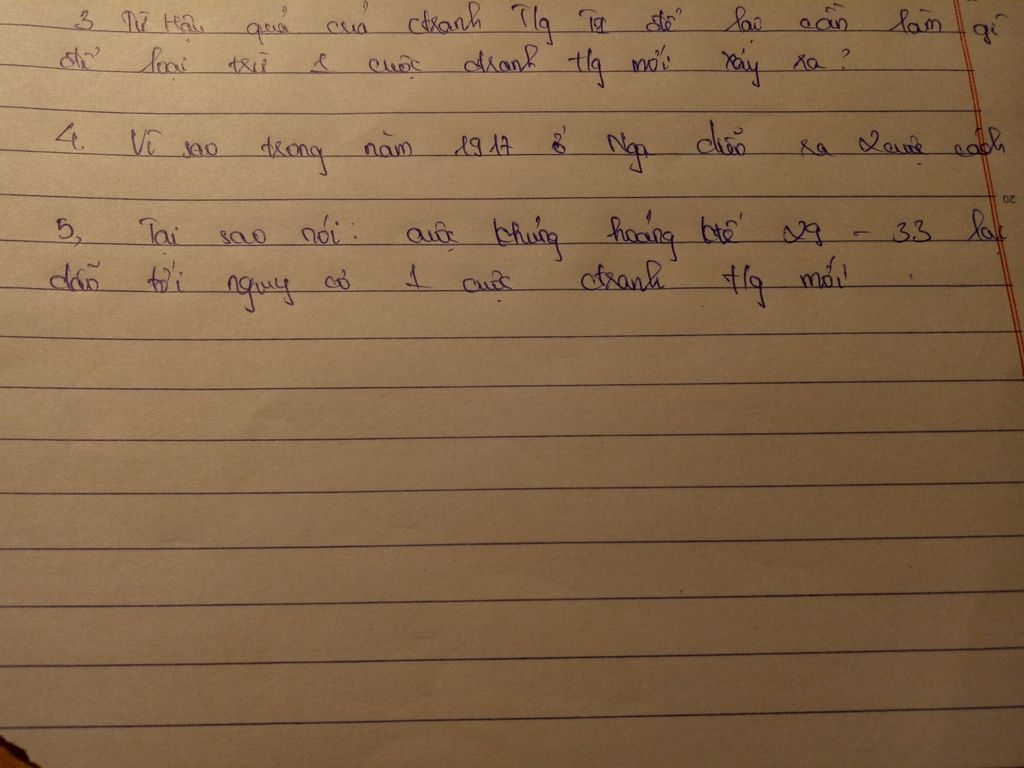 3 Từ Hậu quả của ctranh T/g T1 để lại cần làm gì
để loại trừ 1 cuộc ctranh t/g mới xảy ra?
4. Vì sao trong năm 1917 ở Nga diễn ra 2 cuộc cách
5, Tại sao nói: cuộc khủng hoảng ktế 29 - 33 lại
dẫn tới nguy cơ 1 cuộc ctranh t/g mới
20